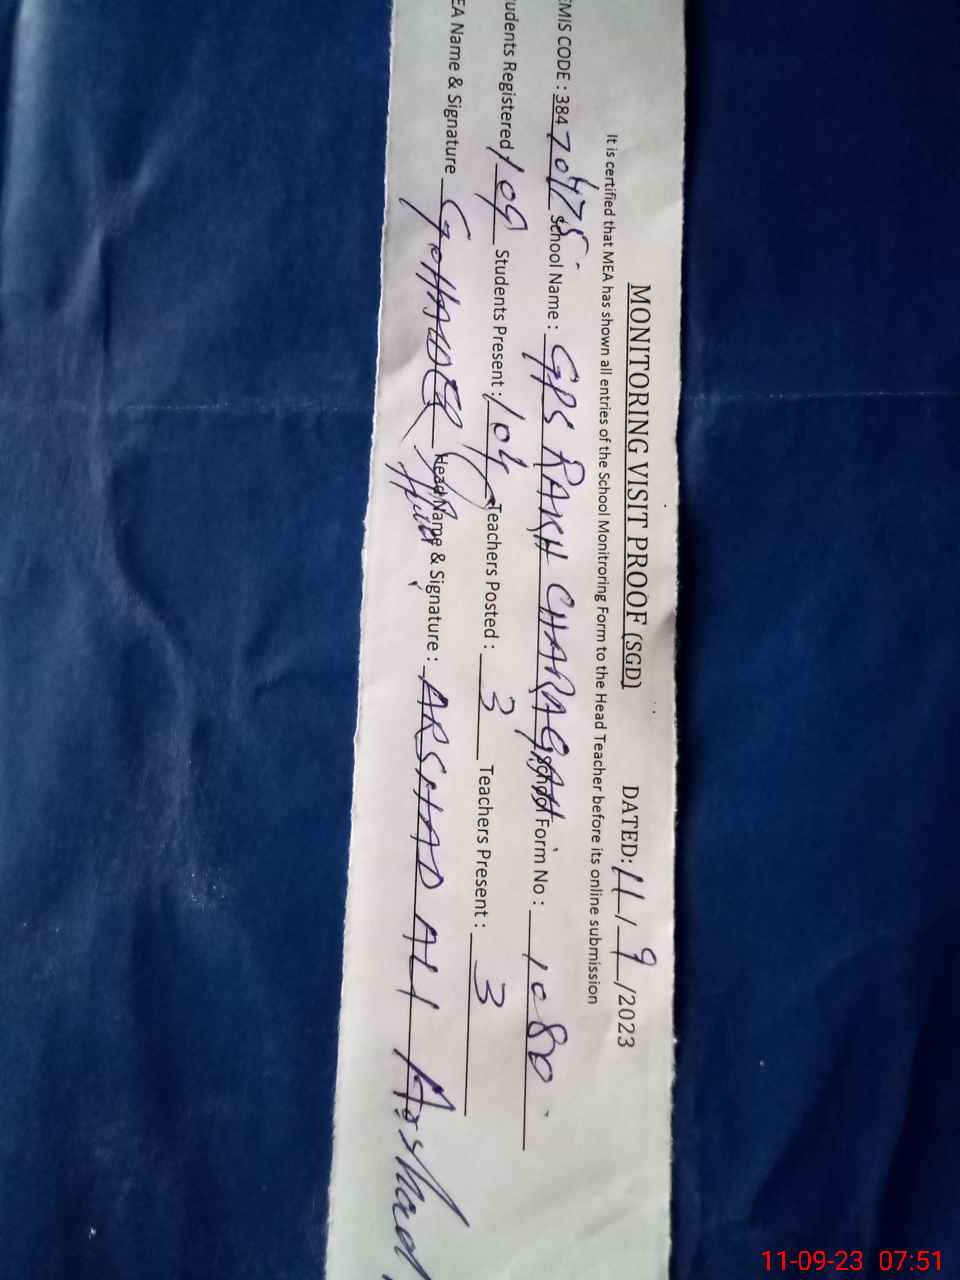 MONITORING VISIT PROOF (SGD) DATED: 11/9/2023
It is certified that MEA has shown all entries of the School Monitroring Form to the Head Teacher before its online submission
EMIS CODE : 384 70475 School Name : GPS RAKH CHARAGAH School Form No : 1080
udents Registered 109 Students Present : 104 Teachers Posted : 3 Teachers Present : 3
EA Name & Signature Head Name & Signature : ARSHAD ALI Arshad
11-09-23 07:51